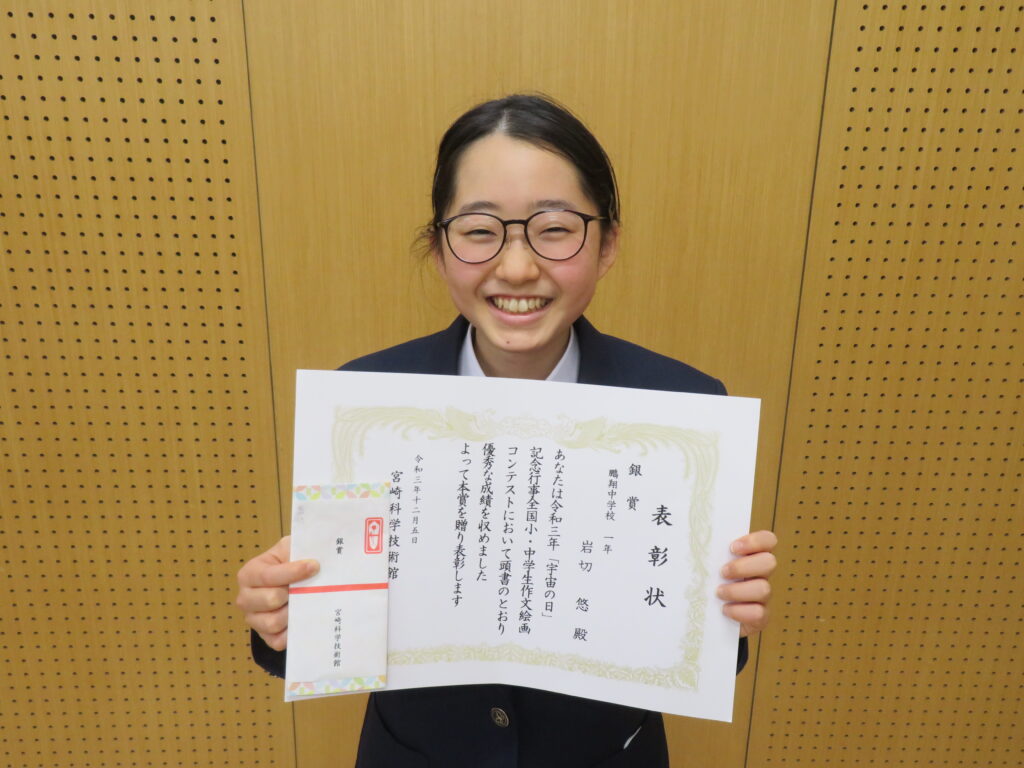 表彰状
銀賞
鵬翔中学校 一年
岩切 悠 殿
あなたは令和三年「宇宙の日」
記念行事全国小・中学生作文絵画
コンテストにおいて頭書のとおり
優秀な成績を収めました
よって本賞を贈り表彰します
令和三年十二月五日
宮崎科学技術館
銀賞
宮崎科学技術館